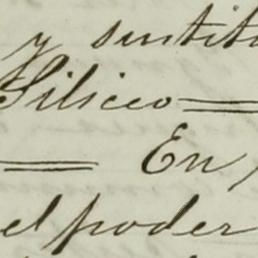 y sustit
Siliceo =
= En
el poder